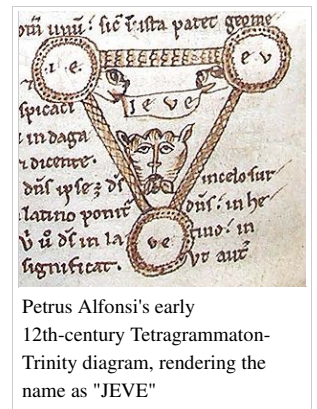 unū : sic̄ ista patet geome
i e. e v
ieve
spicaci
in daga
dicente.
dn̄s ipse ds̄ in celo sur
latino ponit dn̄s : in he
ds̄ in la ve tino : in
significat. ut aut̄
Petrus Alfonsi's early
12th-century Tetragrammaton-
Trinity diagram, rendering the
name as "JEVE"